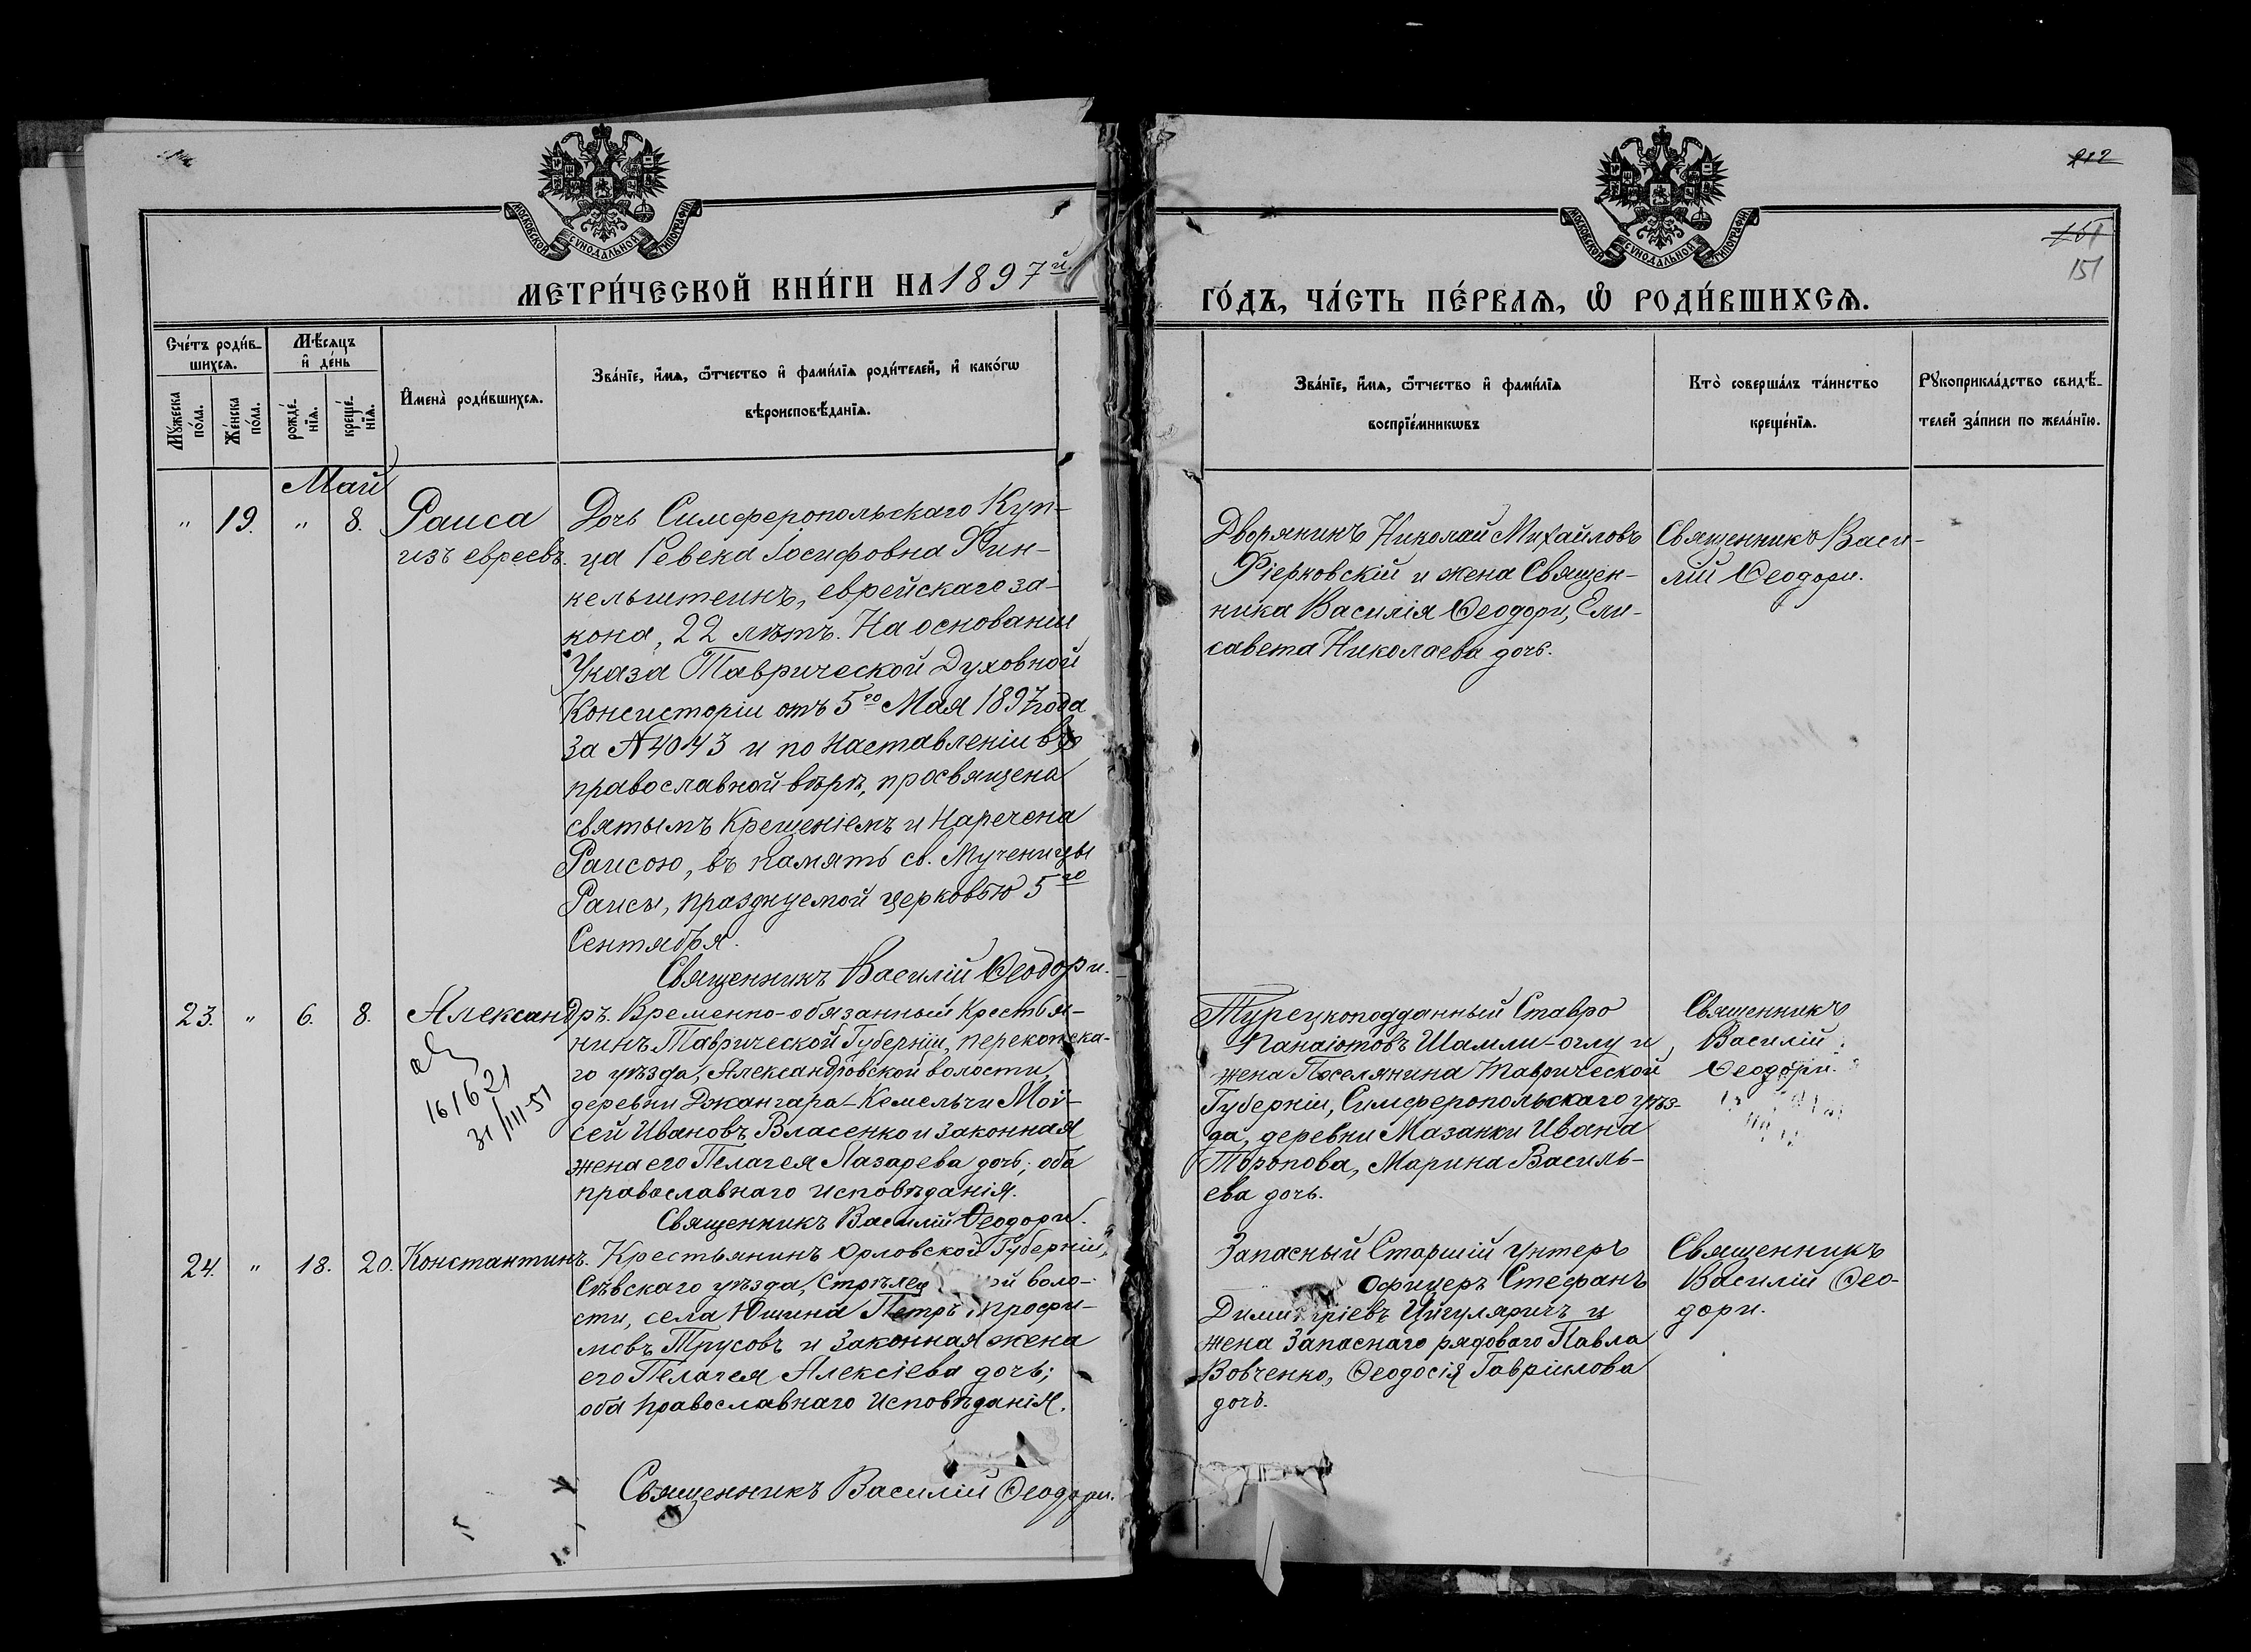 МОСКОВСКОЙ СѴНОДАЛЬНОЙ ТИПОГРАФІИ
МЕТРИ́ЧЕСКОЙ КНИ́ГИ НА 1897й
Сче́тъ роди́в-
шихсѧ.
Мѣ́сѧцъ
и҆ де́нь
Мꙋ́жеска
по́ла.
Же́нска
по́ла.
рожде́-
нїѧ.
креще́-
нїѧ.
И҆мена̀ роди́вшихсѧ.
Зва́нїе, и҆́мѧ, ѻ҆́тчество и҆ фами́лїѧ роди́телей, и҆ како́гѡ
вѣроисповѣ́данїѧ.
Май
" 19. " 8. Раиса
изъ евреевъ.
Дочь Симферопольскаго Куп-
ца Ревека Іосифовна Фин-
кельштеинъ, еврейскаго за-
кона, 22 лѣтъ. На основаніи
Указа Таврической Духовной
Консисторіи отъ 5го Мая 1897 года
за № 4043 и по наставленіи въ
православной вѣрѣ, просвящена
святымъ Крещеніемъ и Наречена
Раисою, въ память св. Мученицы
Раисы, празднуемой церковью 5го
Сентября.
Священникъ Василій Ѳеодори.
23. " 6. 8. Александръ. Временно-обязанный Крестья-
нинъ Таврической Губерніи, перекопска-
го уѣзда, Александровской волости,
деревни Джангара-Кемельчи Мои-
сей Ивановъ Власенко и законная
жена его Пелагея Лазарева дочь; оба
православнаго исповѣданія.
Священникъ Василій Ѳеодори.
161621
31/III-51
24. " 18. 20. Константинъ. Крестьянинъ Орловской Губерніи,
Сѣвскаго уѣзда, Стрѣлец й воло-
сти, села Юшина Петръ Трофи-
мовъ Трусовъ и Законная жена
его Пелагея Алексіева дочь;
оба православнаго исповѣданія.
Священникъ Василій Ѳеодори.
212
151
151
МОСКОВСКОЙ СѴНОДАЛЬНОЙ ТИПОГРАФІИ
ГО́ДЪ, ЧА́СТЬ ПЕ́РВАѦ, Ѡ҆ РОДИ́ВШИХСѦ.
Зва́нїе, и҆́мѧ, ѻ҆́тчество и҆ фами́лїѧ
воспрїе́мникѡвъ
Кто̀ соверша́лъ та́инство
креще́нїѧ.
Рꙋкоприкла́дство свидѣ́-
телей за́писи по жела́нїю.
Дворянинъ Николай Михайловъ
Фіерковскій и жена Священ-
ника Василія Ѳеодори, Ели-
савета Николаева дочь.
Священникъ Васи-
лій Ѳеодори.
Турецкоподданный Ставро
Панаіотовъ Шамли-оглу и
жена Поселянина Таврической
Губерніи, Симферопольскаго уѣз-
да, деревни Мазанки Ивана
Торопова, Марина Василь-
ева дочь.
Священникъ
Василій
Ѳеодори.
Запасный Старшій Унтеръ
Офицеръ Стефанъ
Димитріевъ Цигуляричъ и
жена Запаснаго рядоваго Павла
Вовченко, Ѳеодосія Гавріилова
дочь.
Священникъ
Василій Ѳео-
дори.